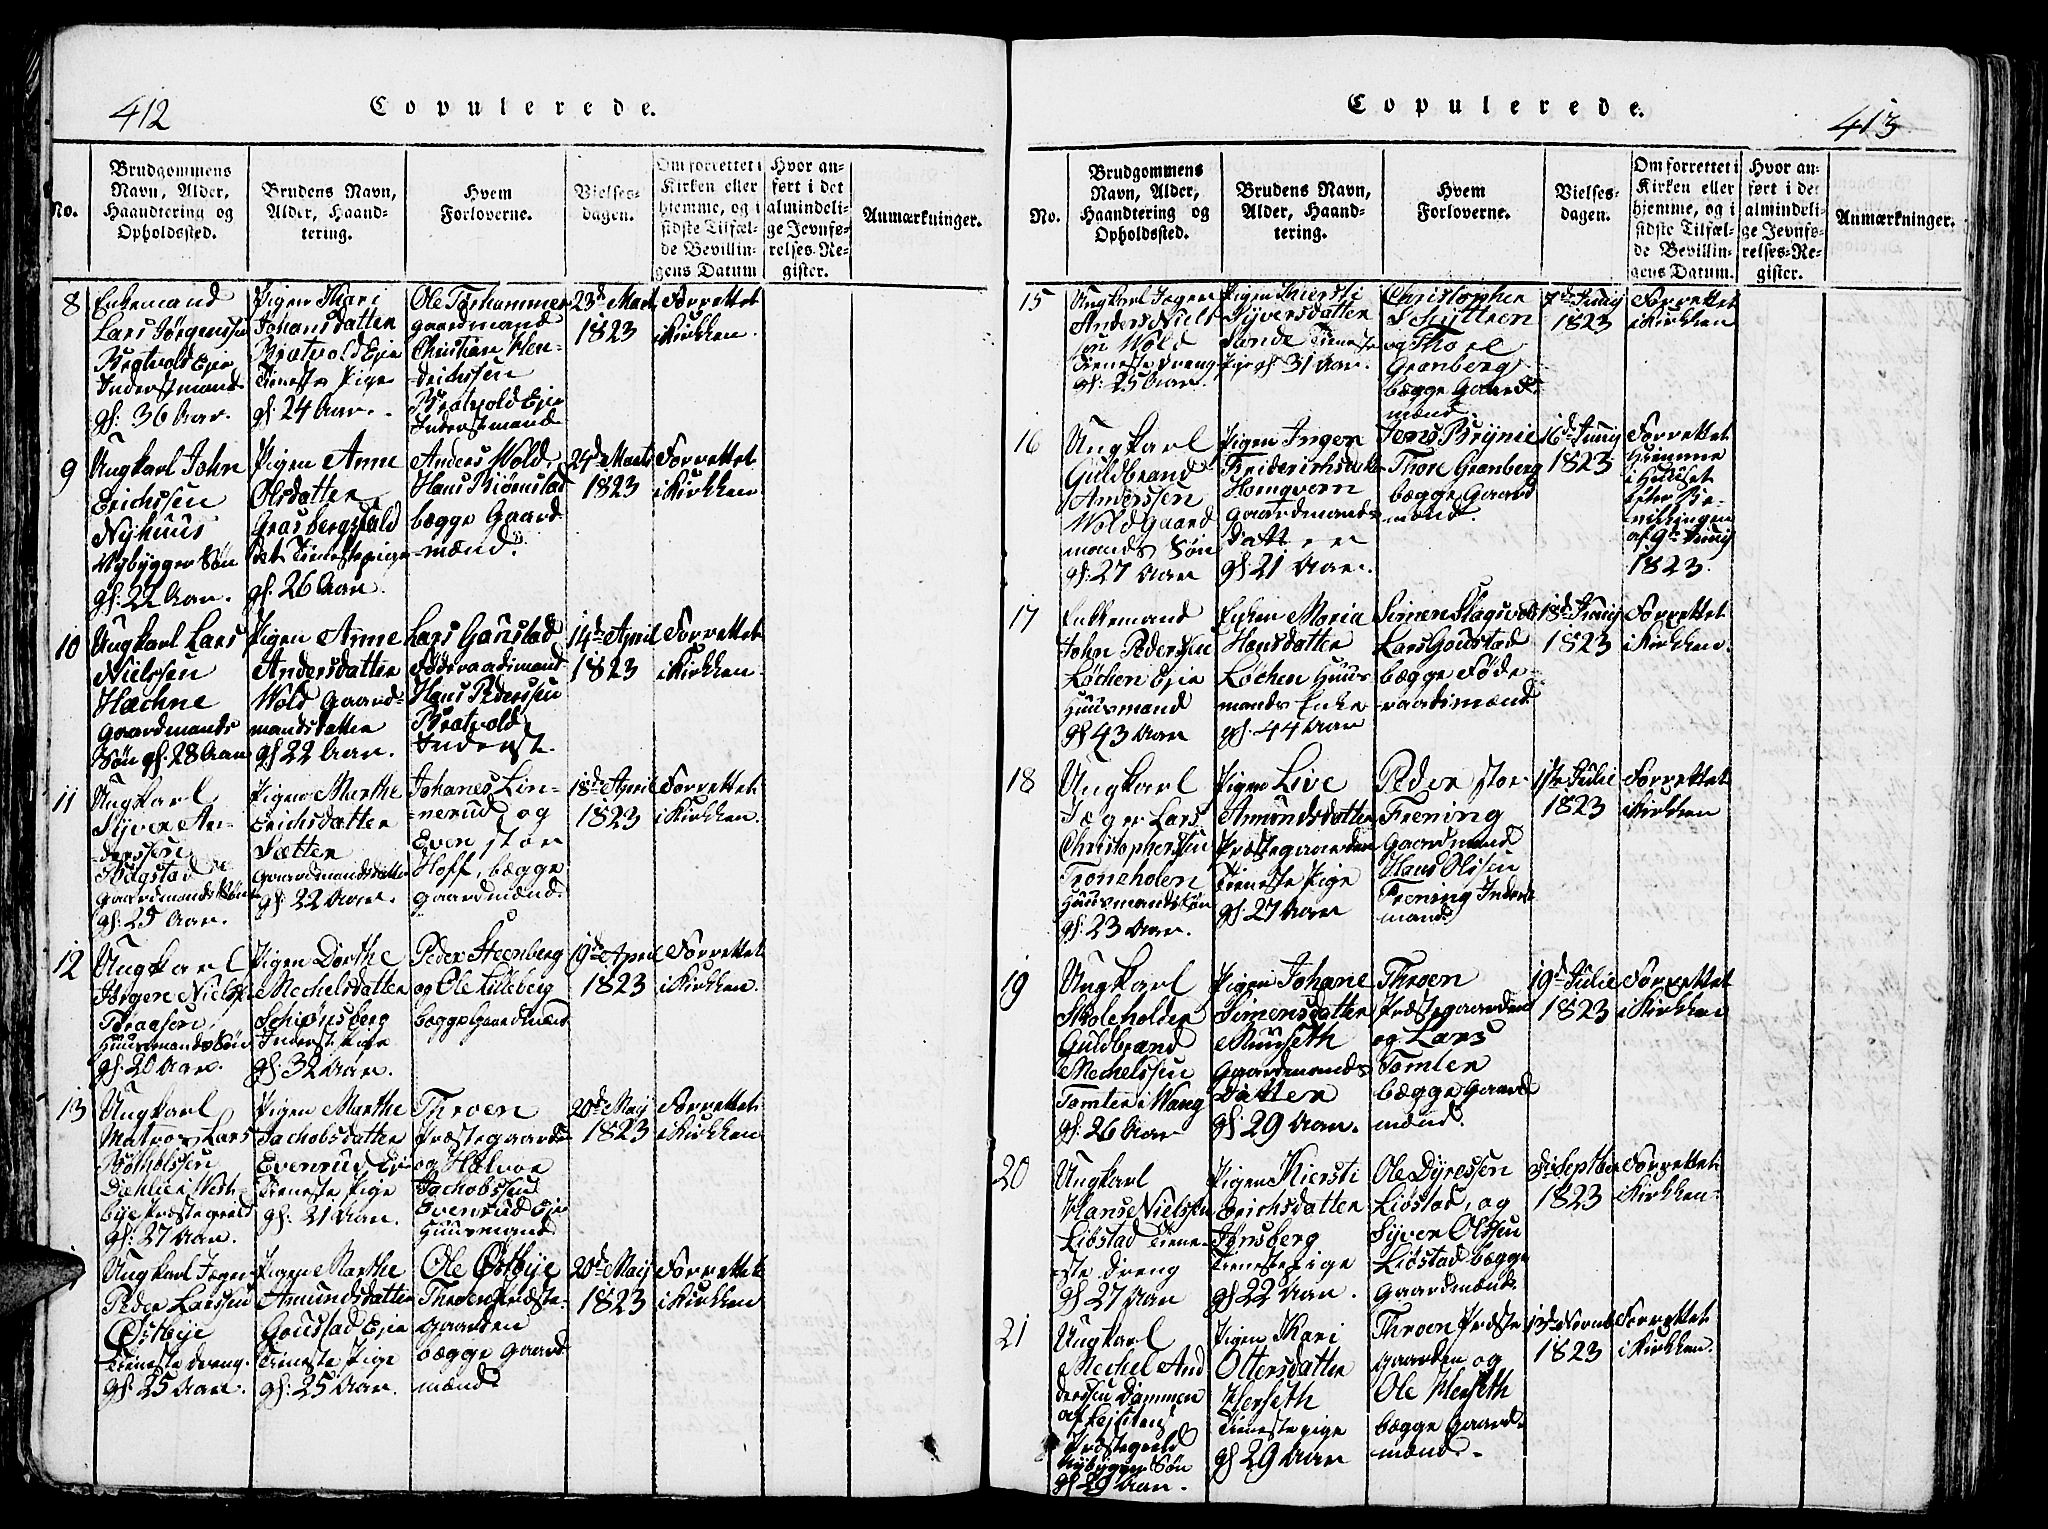 412
Copulerede.
No.
Brudgommens
Navn, Alder,
Haandtering og
Opholdssted.
Brudens Navn,
Alder, Haand-
tering.
Hvem
Forloverne.
Vielses-
dagen.
Om forrettet i
Kirken eller
hjemme, og i
sidste Tilfæl-
de Bevillin-
gens Datum
Hvor an-
ført i det
almindeli-
ge Jevnfø-
relses-Re-
gister.
Anmærkninger.
8
Enkemand
Lars Jørgenssen
Bratvold Eje
Inderstmand
gl: 36 Aar.
Pigen Kari
Johansdatter
Bratvold Eje
Tieneste Pige
gl: 24 Aar.
Ole Torshammer
gaardmand
Christian Hen-
drichssen
Bratvold Eje
Inderstmand
23de Marti
1823
Forrettet
i Kirkken.
9
Ungkarl John
Erichssen
Nyhuus
Nybygger Søn
gl: 22 Aar.
Pigen Anne
Olsdatter
Grasbergsfald
Tienestepige
gl: 26 Aar.
Anders Wold,
Hans Biørnstad
bægge Gaard
-mænd.
24de Marti
1823
Forrettet
i Kirkken
10
Ungkarl Lars
Nielssen
Hæchne
Gaardmands
Søn gl: 28 Aar
Pigen Anne
Andersdatter
Wold Gaard-
mandsdatter
gl: 22 Aar.
Lars Gaustad
Føderaadsmand
Hans Pederssen
Bratvold
Inderst.
14de April
1823
Forrettet
i Kirkken.
11
Ungkarl
Syver An-
derssen
Gaardmands Søn
gl: 25 Aar.
Pigen Marthe
Erichsdatter
Sætter
Gaardmandsdatter
gl: 22 Aar.
Johanes Lin-
-nerud og
Even stor
Hoff, bægge
gaardmænd.
18de April
1823
Forrettet
i Kirkken.
12
Ungkarl
Børgere Nielssen
Braasen
Huusmands Søn
gl: 20 Aar.
Pigen Dorthe
Mechelsdatter
Schiønsberg
Inderste Pige
gl: 32 Aar.
Peder Steenberg
og Ole Lilleberg
bægge Gaardmænd
19de April
1823
Forrettet
i Kirkken.
13
Ungkarl
Matros Lars
Bottholssen
Diehlie i Vest-
bye Præstegield
gl: 27 Aar.
Pigen Marthe
Jachobsdatter
Evenrud Eje
Tieneste Pige
gl: 21 Aar.
Throen
Præstegaarden
og Halvor
Jachobssen
Evenrud Eje
Huusmand
20de May
1823
Forrettet
i Kirkken
Ungkarl Jeger
Peder Larssen
Østbye
Tieneste dreng.
gl: 25 Aar.
Pigen Marthe
Amundsdatter
Goustad Eje
Tieneste Pige
gl: 25 Aar.
Ole Østbye
Throen Præste-
gaarden
bægge gaard
mænd.
20de May
1823
Forrettet
i Kirkken
Copulerede.
413
No.
Brudgommens
Navn, Alder,
Haandtering og
Opholdssted.
Brudens Navn,
Alder, Haand-
tering.
Hvem
Forloverne.
Vielses-
dagen.
Om forrettet i
Kirken eller
hjemme, og i
sidste Tilfæl-
de Bevillin-
gens Datum.
Hvor an-
ført i det
almindeli-
ge Jevnfø-
relses-Re-
gister.
Anmærkninger.
15
Ungkarl Jeger
Anders Niels
sen Wold
Tieneste dreng
gl: 25 Aar.
Pigen Kiersti
Syversdatter
Sande Tieneste
Pige gl: 31 Aar.
Christopher
Schytten
og Thore
Granberg
bægge Gaard-
mænd.
7de Juny
1823
Forrettet
i Kirkken
16
Ungkarl
Guldbrand
Anderssen
Wold Gaard
mands Søn
gl: 27 Aar
Pigen Inger
Friderichsdatter
Homqvern
gaardmands
datter
gl: 21 Aar.
Jens Brynie
Thore Granberg
bægge Gaard
mænd.
16de Juny
1823
Forrettet
Hiemme
i Huuset
efter Be-
villingen
af 9de Juny
1823.
17
Enkemand
John Pedersen
Løchen Eje
Huusmand
gl 43 Aar
Enken Maria
Hansdatter
Løchen Huus
mands Enke
gl. 44 Aar
Simen Slagsvold
Lars Goustad
bægge Føde-
raadsmænd
18de Juny
1823
Forrettet
i Kirkken.
18
Ungkarl
Jæger Lars
Christophersen
Troneholen
Huusmands Søn
gl: 23 Aar.
Pigen Live
Amundsdatter
Præstegaarden
Tieneste Pige
gl: 27 Aar
Peder stor
Frening
Gaardmand
Hans Olsen
Frening Inderst
mand
1ste Julii
1823
Forrettet
i Kirkken
19
Ungkarl
Skoleholder
Guldbrand
Mechelssen
Tomter i Wang
gl: 26 Aar
Pigen Johane
Simensdatter
Muuseth
Gaardmands
Datter
gl 29 Aar.
Throen
Præstegaarden
og Lars
Tomter
bægge Gaard
mænd.
19de Julie
1823
Forrettet
i Kirkken
20
Ungkarl
Hans Nielssen
Liøstad Tiene-
ste dreng
gl 27 Aar
Pigen Kiersti
Erichsdatter
Tieneste Pige
gl 22 Aar.
Ole Dyressen
Liøstad, og
Syver Olssen
Liøstad bægge
Gaardmænd.
Septber
1823
Forrettet
i Kirkken.
21
Ungkarl
Mechel And
derssen Dammen
Præstegield
Nybygger Søn
gl 29 Aar.
Pigen Kari
Ottersdatter
Herseth
Tienestepige
gl 29 Aar
Throen Præste
gaarden og
Ole Herseth
bægge Gaard-
mænd.
13de Novmb
1823
Forrettet
i Kirkken.